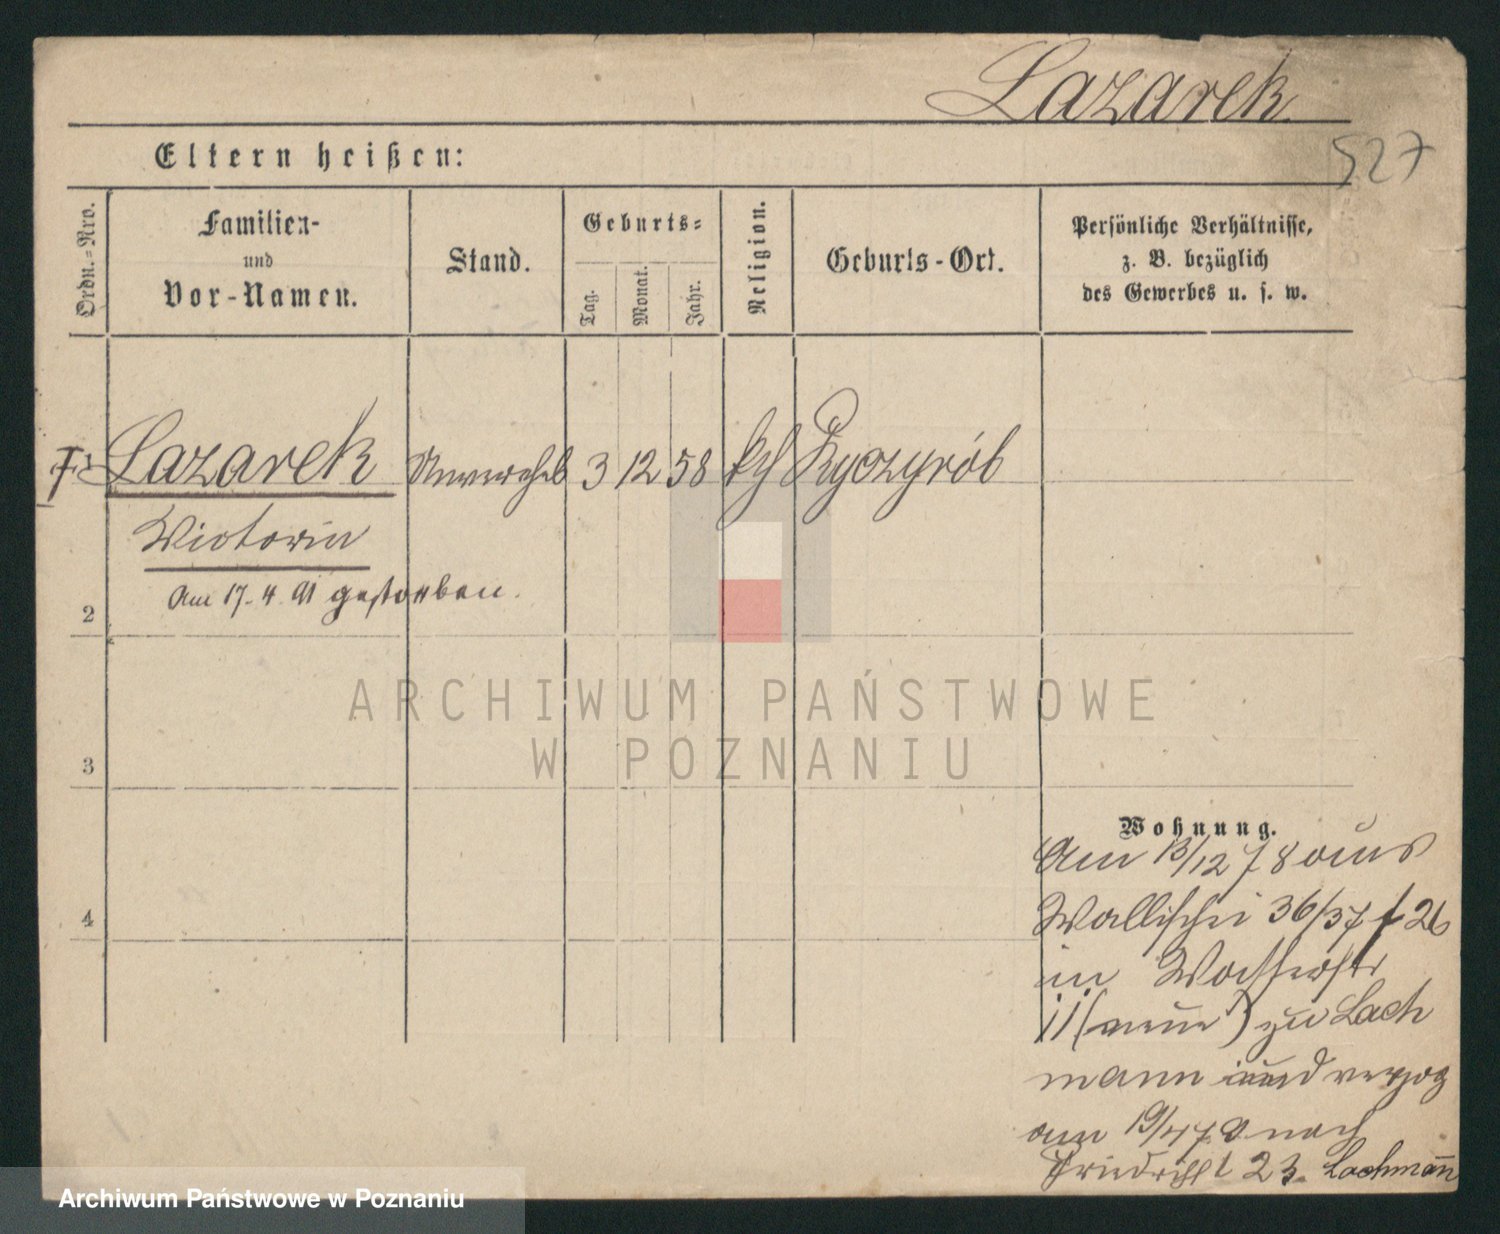 Lazarek
527
Eltern heißen:
Ordn.=Nro.
Familien-
und
Vor-Namen.
Stand.
Geburts=
Tag.
Monat.
Jahr.
Religion.
Geburts-Ort.
Persönliche Verhältnisse,
z. B. bezüglich
des Gewerbes u. s. w.
Lazarek
Unverehel 3 12 58 kth Ryczyrób
Victoria
Am 17. 4. 91 gestorben.
2
ARCHIWUM PAŃSTWOWE
W POZNANIU
3
4
Wohnung.
Am 13/12 78 aus
Wallischei 36/37 f 26
in Wasserstr
11 (neue) zu Lach
mann und verzog
am 19/4 79 nach
Friedrichst 23. Lachmann
Archiwum Państwowe w Poznaniu